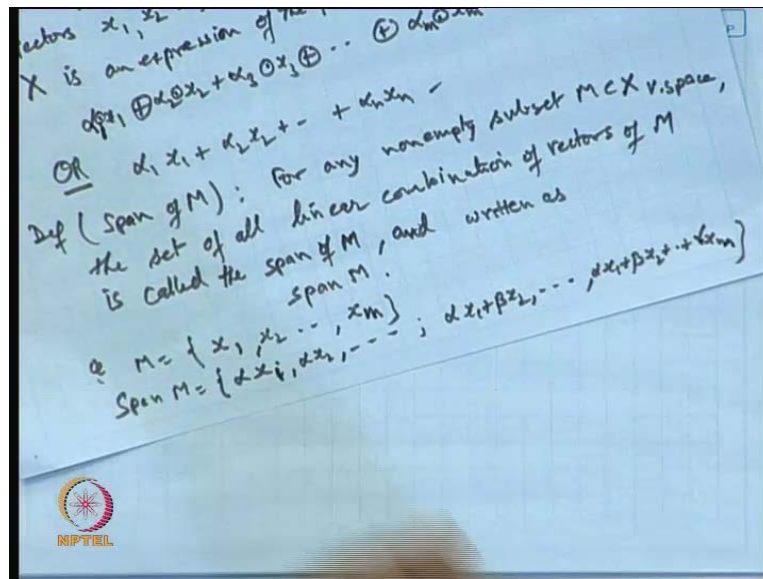 vectors x₁, x₂
X is an expression of the
α₁⊙x₁ ⊕ α₂⊙x₂ + α₃⊙x₃ ⊕ ·· ⊕ αₘ⊙xₘ
OR α₁x₁ + α₂x₂ + - + αₙxₙ -
Def (Span of M): For any nonempty subset M ⊂ X v.space,
the set of all linear combination of vectors of M
is called the span of M, and written as
span M.
M = {x₁, x₂ ··, xₘ}
Span M = {αx₁, αx₂, ----; αx₁+βx₂, ---, αx₁+βx₂+··+γxₘ}
NPTEL